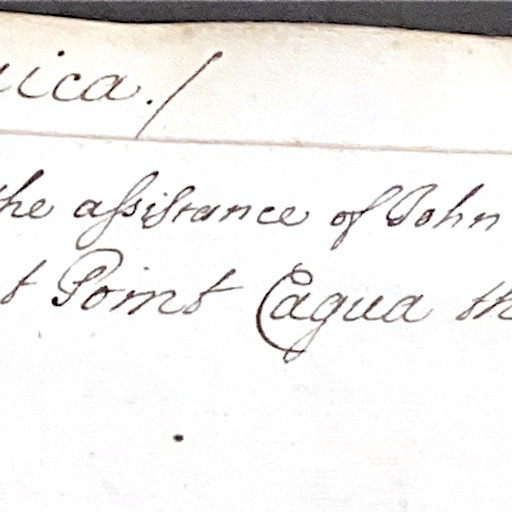 ica./
the assistance of John
t Point Cagua th